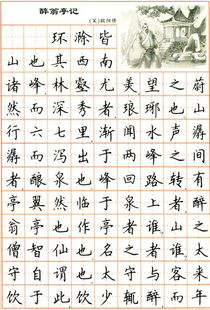 醉翁亭记
(宋)欧阳修
环滁皆
山也其西南
诸峰林壑尤美望之蔚
然而深秀者琅琊也山
行六七里渐闻水声潺
潺而泻出于两峰之间
者酿泉也峰回路转有
亭翼然临于泉上者醉
翁亭也作亭者谁山之
僧智仙也名之者谁太
守自谓也太守与客来
饮于此饮少辄醉而年